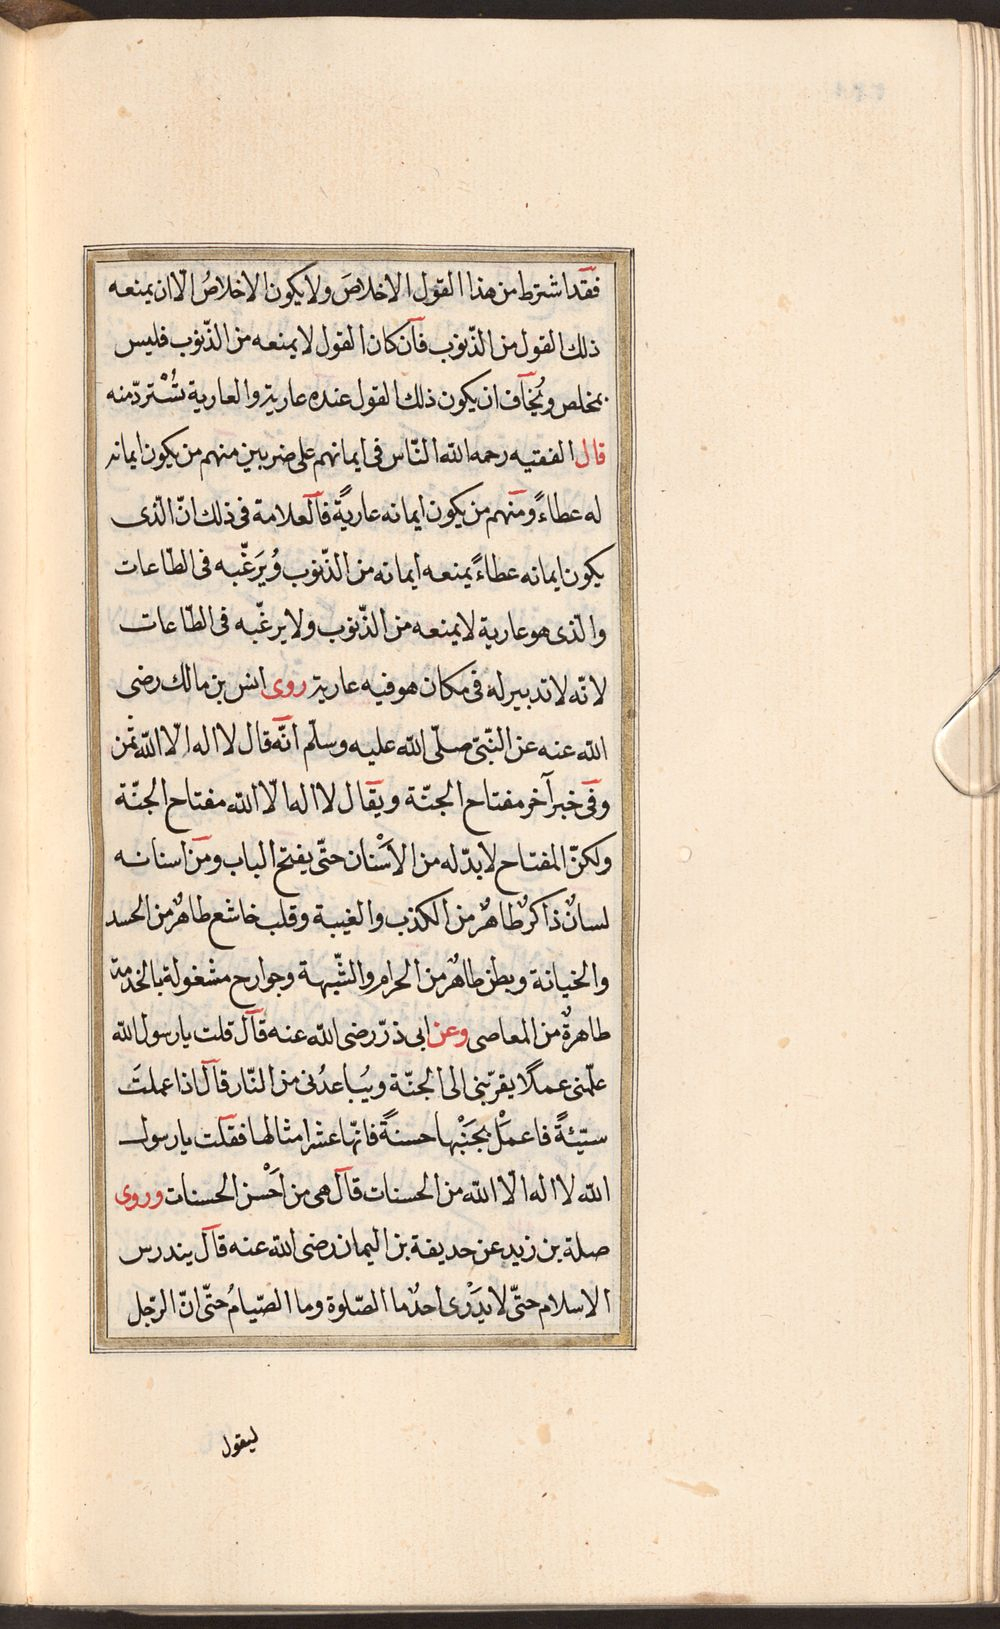 فقد اشترط من هذا القول الاخلاصَ ولا يكون الاخلاصُ الّا ان يمنعه
ذلك القول من الذّنوب فان كان القول لا يمنعه من الذّنوب فليس
بمخلص ويُخاف ان يكون ذلك القول عنده عارية والعارية تُسْتردّ منه
قال الفقيه رحمه الله النّاس فى ايمانهم على ضربين منهم من يكون ايمانه
له عطاءً ومنهم من يكون ايمانه عاريةً فالعلامة فى ذلك انّ الّذى
يكون ايمانه عطاءً يمنعه ايمانه من الذّنوب ويُرَغّبه فى الطّاعات
والّذى هو عارية لا يمنعه من الذّنوب ولا يرغّبه فى الطّاعات
لانّه لا تدبير له فى مكان هو فيه عارية روى انس بن مالك رضى
الله عنه عن النّبىّ صلّى الله عليه وسلّم انّه قال لا اله الّا الله ثمن
وفى خبر آخر مفتاح الجنّة ويقال لا اله الّا الله مفتاح الجنّة
ولكنّ المفتاح لا بدّ له من الاَسْنان حتّى يفتح الباب ومن اسنانه
لسانٌ ذاكرٌ طاهرٌ من الكذب والغيبة وقلب خاشع طاهرٌ من الحسد
والخيانة وبطن طاهرٌ من الحرام والشّبهة وجوارح مشغولة بالخدمة
طاهرةٌ من المعاصى وعن ابى ذرّ رضى الله عنه قال قلت يا رسول الله
علّمنى عملًا يقرّبنى الى الجنّة ويُباعدُنى من النّار قال اذا عملتَ
سيّئةً فاعمَلْ بجَنْبها حسنةً فانّها عشر امثالها فقلت يا رسول
الله لا اله الّا الله من الحسنات قال هى من اَحْسن الحسنات وروى
صلة بن زيد عن حذيفة بن اليمان رضى الله عنه قال يندرس
الاسلام حتّى لا يَدْرى احدٌ ما الصّلوة وما الصّيامُ حتّى انّ الرّجل
ليقول